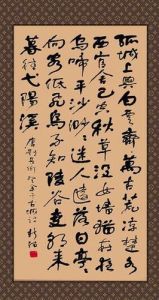 孤城上與白雲齊萬古荒涼楚水
西官舍已空秋草沒女墻猶在夜
烏啼平沙渺渺迷人遠落日亭亭
向客低飛鳥不知陵谷變朝來
暮往弋陽溪 唐劉長卿登余干古城詩